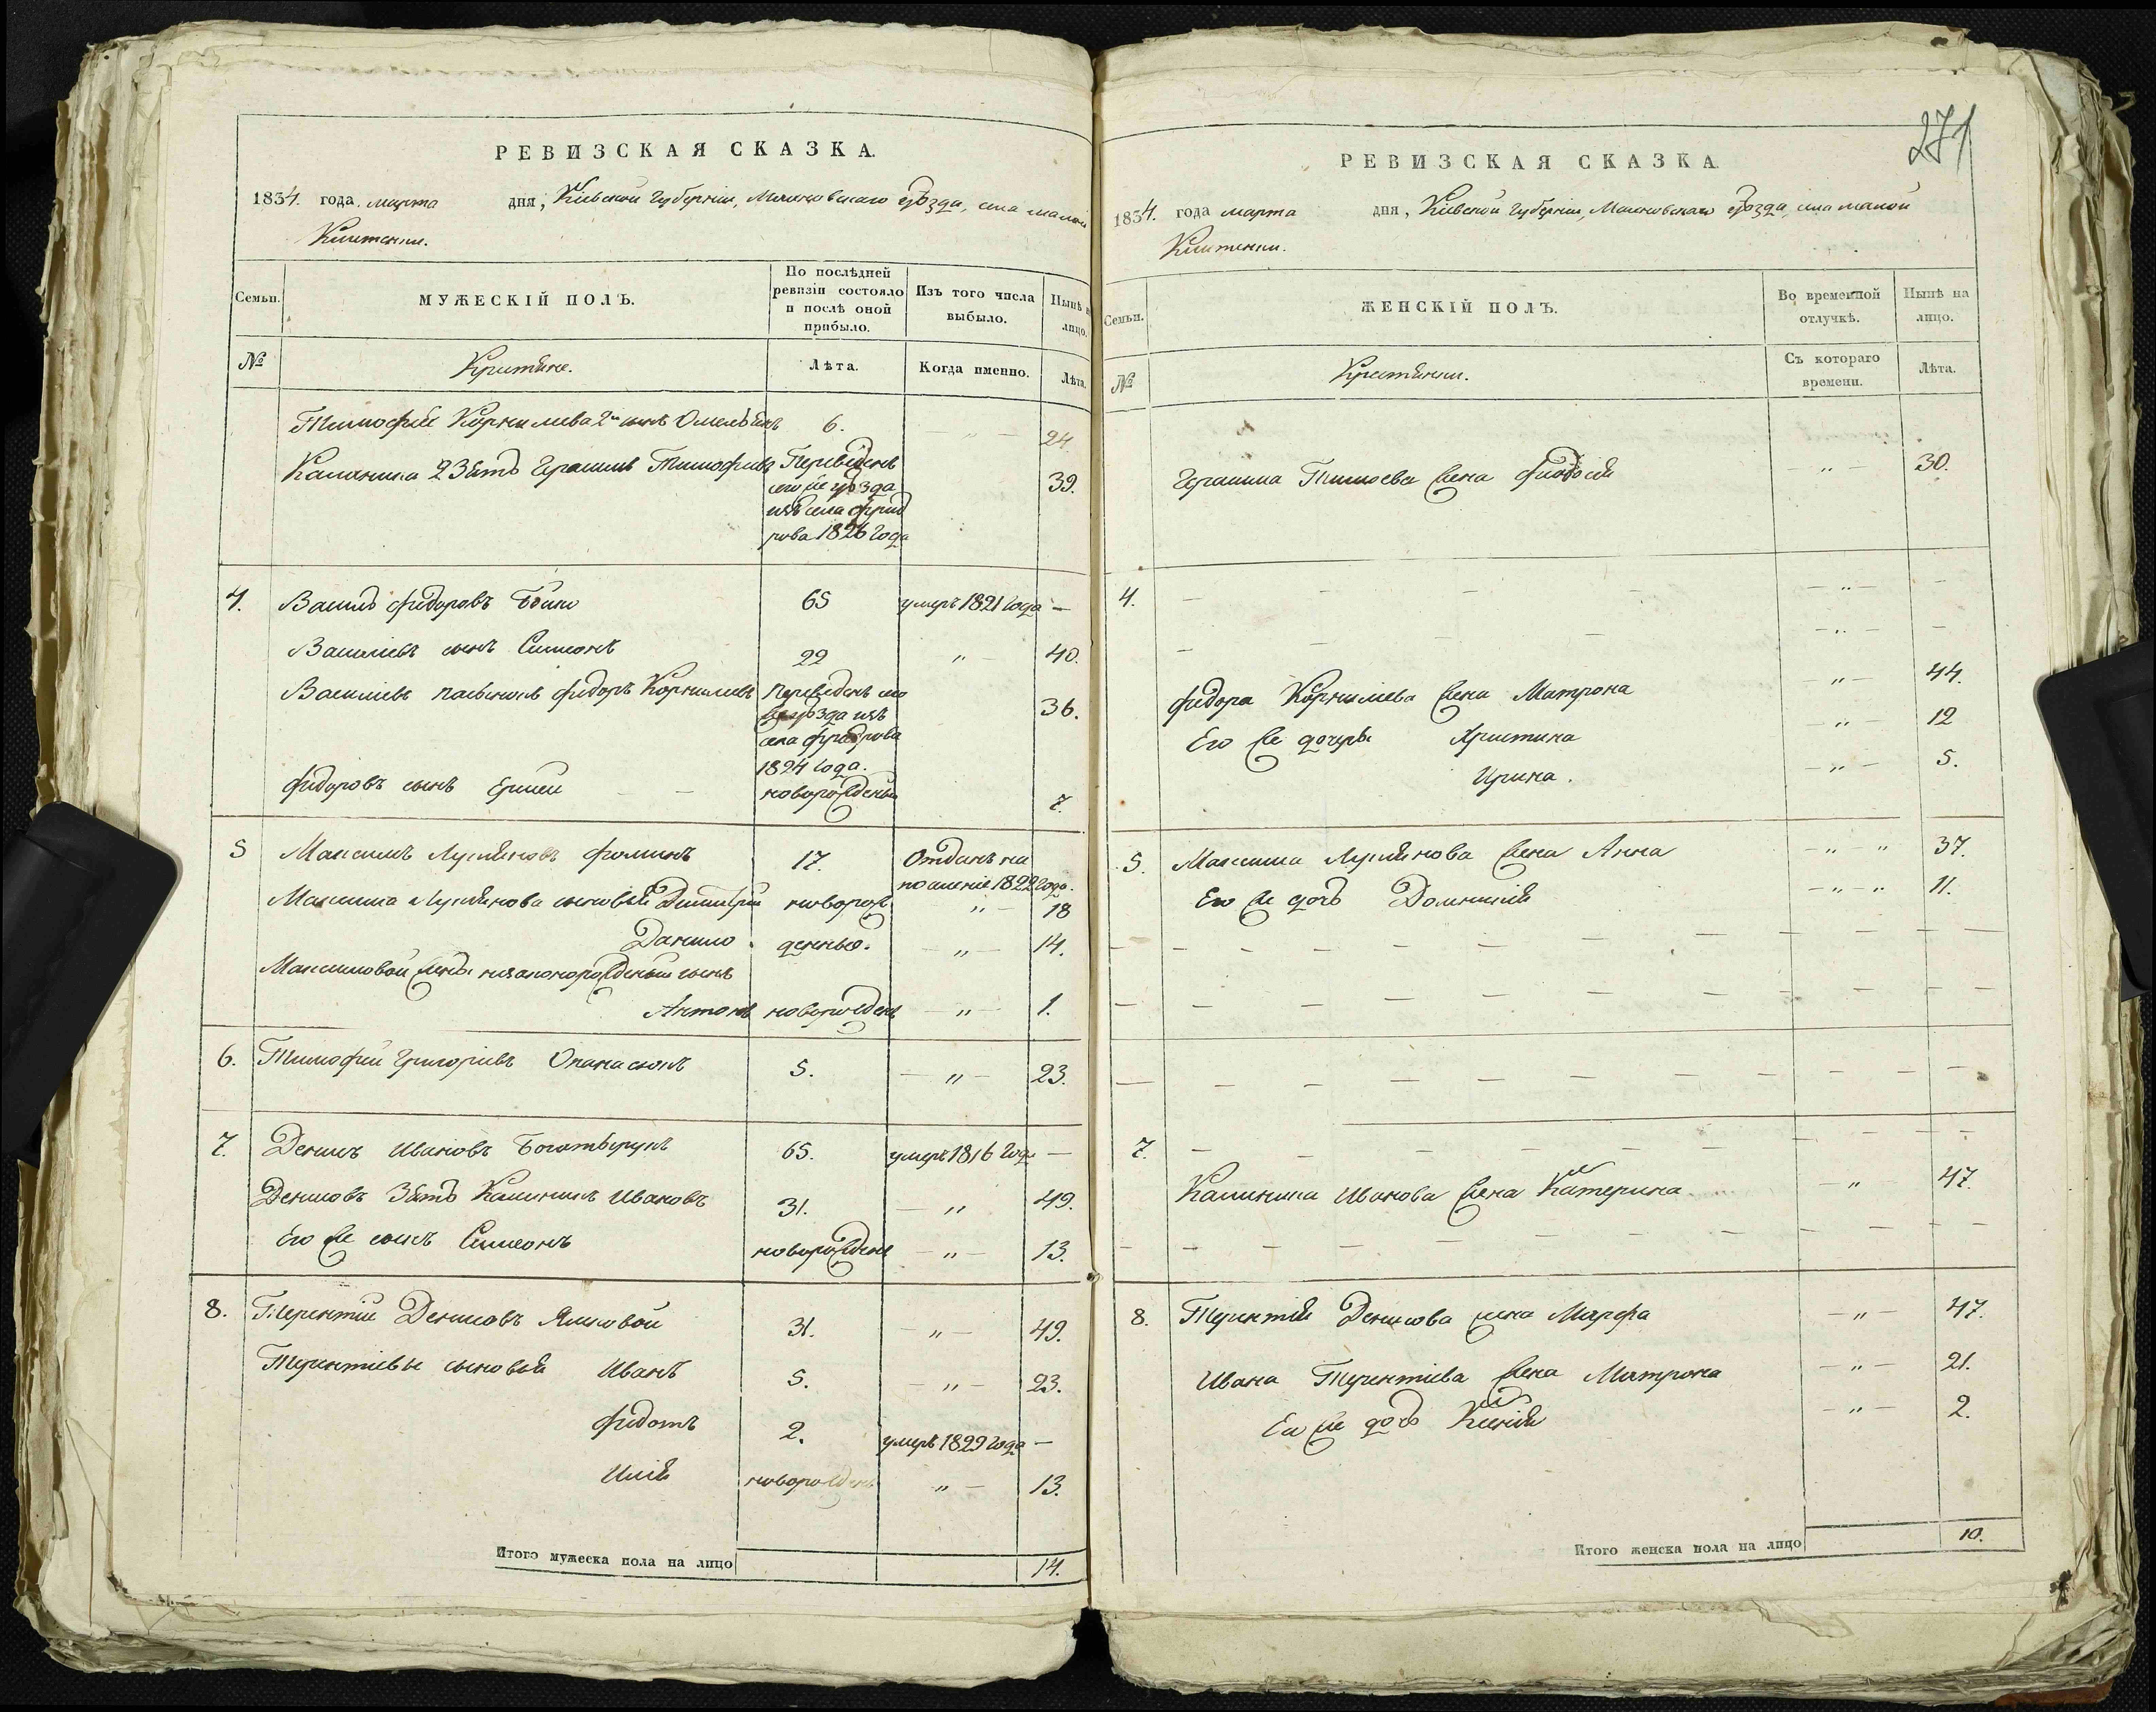 РЕВИЗСКАЯ СКАЗКА.
1834. года марта дня, Кіевской Губерніи, Махновскаго уѣзда, села малой
Клитенки.
Семьи.
МУЖЕСКІЙ ПОЛЪ.
По послѣдней ревизіи состояло и послѣ оной прибыло.
Изъ того числа выбыло.
Нынѣ на лицо.
№
Крестяне.
Лѣта.
Когда именно.
Лѣта.
Тимофея Корнилева 2й сынъ Омельянъ 6. 〃 24
Герасимъ Тимофѣевъ Переведенъ
39.
его же уѣзда
изъ села
1826 года
4. Василь Федоровъ 65 умеръ 1821 года —
Васильевъ сынъ Симеонъ 22 〃 40.
Васильевъ пасынокъ Федоръ Корнилевъ Переведенъ его
же уѣзда изъ 36.
села
1824 года.
Федоровъ сынъ — — новорожденый 7.
5 Максимъ Лукяновъ Фоминъ 17. Отданъ на
поселеніе 1822 года.
Максима Лукянова сыновья Димитрій новорож 〃 18
Данило денные. 〃 14.
Максимовой жены незаконорожденый сынъ
Антонъ новорожденъ 〃 1.
6. Тимофей Григоріевъ Опанасюкъ 5. 〃 23.
7. Денисъ Ивановъ Богатырукъ 65. умеръ 1816 года —
Денисовъ Зять Калиникъ Ивановъ 31. 〃 49.
Его же сынъ Симеонъ новорожденъ 〃 13.
8. Терентій Денисовъ Яликовой 31. 〃 49.
Терентіевы сыновья Иванъ 5. 〃 23.
Федотъ 2. умеръ 1829 года —
Илія новорожденъ 〃 13.
Итого мужеска пола на лицо 14.
271
РЕВИЗСКАЯ СКАЗКА
1834. года марта дня, Кіевской Губерніи, Махновскаго уѣзда, села малой
Клитенки.
Семьи.
ЖЕНСКІЙ ПОЛЪ.
Во временной отлучкѣ.
Нынѣ на лицо.
№
Крестянки.
Съ котораго времени.
Лѣта.
Герасима жена Феодосія — 〃 — 30.
4. — — — — — 〃 — —
— — — — — 〃 — —
Федора Корнилева жена Матрона — 〃 — 44.
Его же дочери Христина — 〃 — 12
Ирина. — 〃 — 5.
5. Максима Лукянова жена Анна — 〃 — 〃 37.
Его же дочь Домникія — 〃 — 〃 11.
7. — — — — —
Калиника Иванова жена Катерина — 〃 47.
8. Терентія Денисова жена Марфа — 〃 — 47.
Ивана Терентіева жена Матрона — 〃 — 21.
Ея же дочь Ксенія — 〃 — 2.
Итого женска пола на лицо 10.